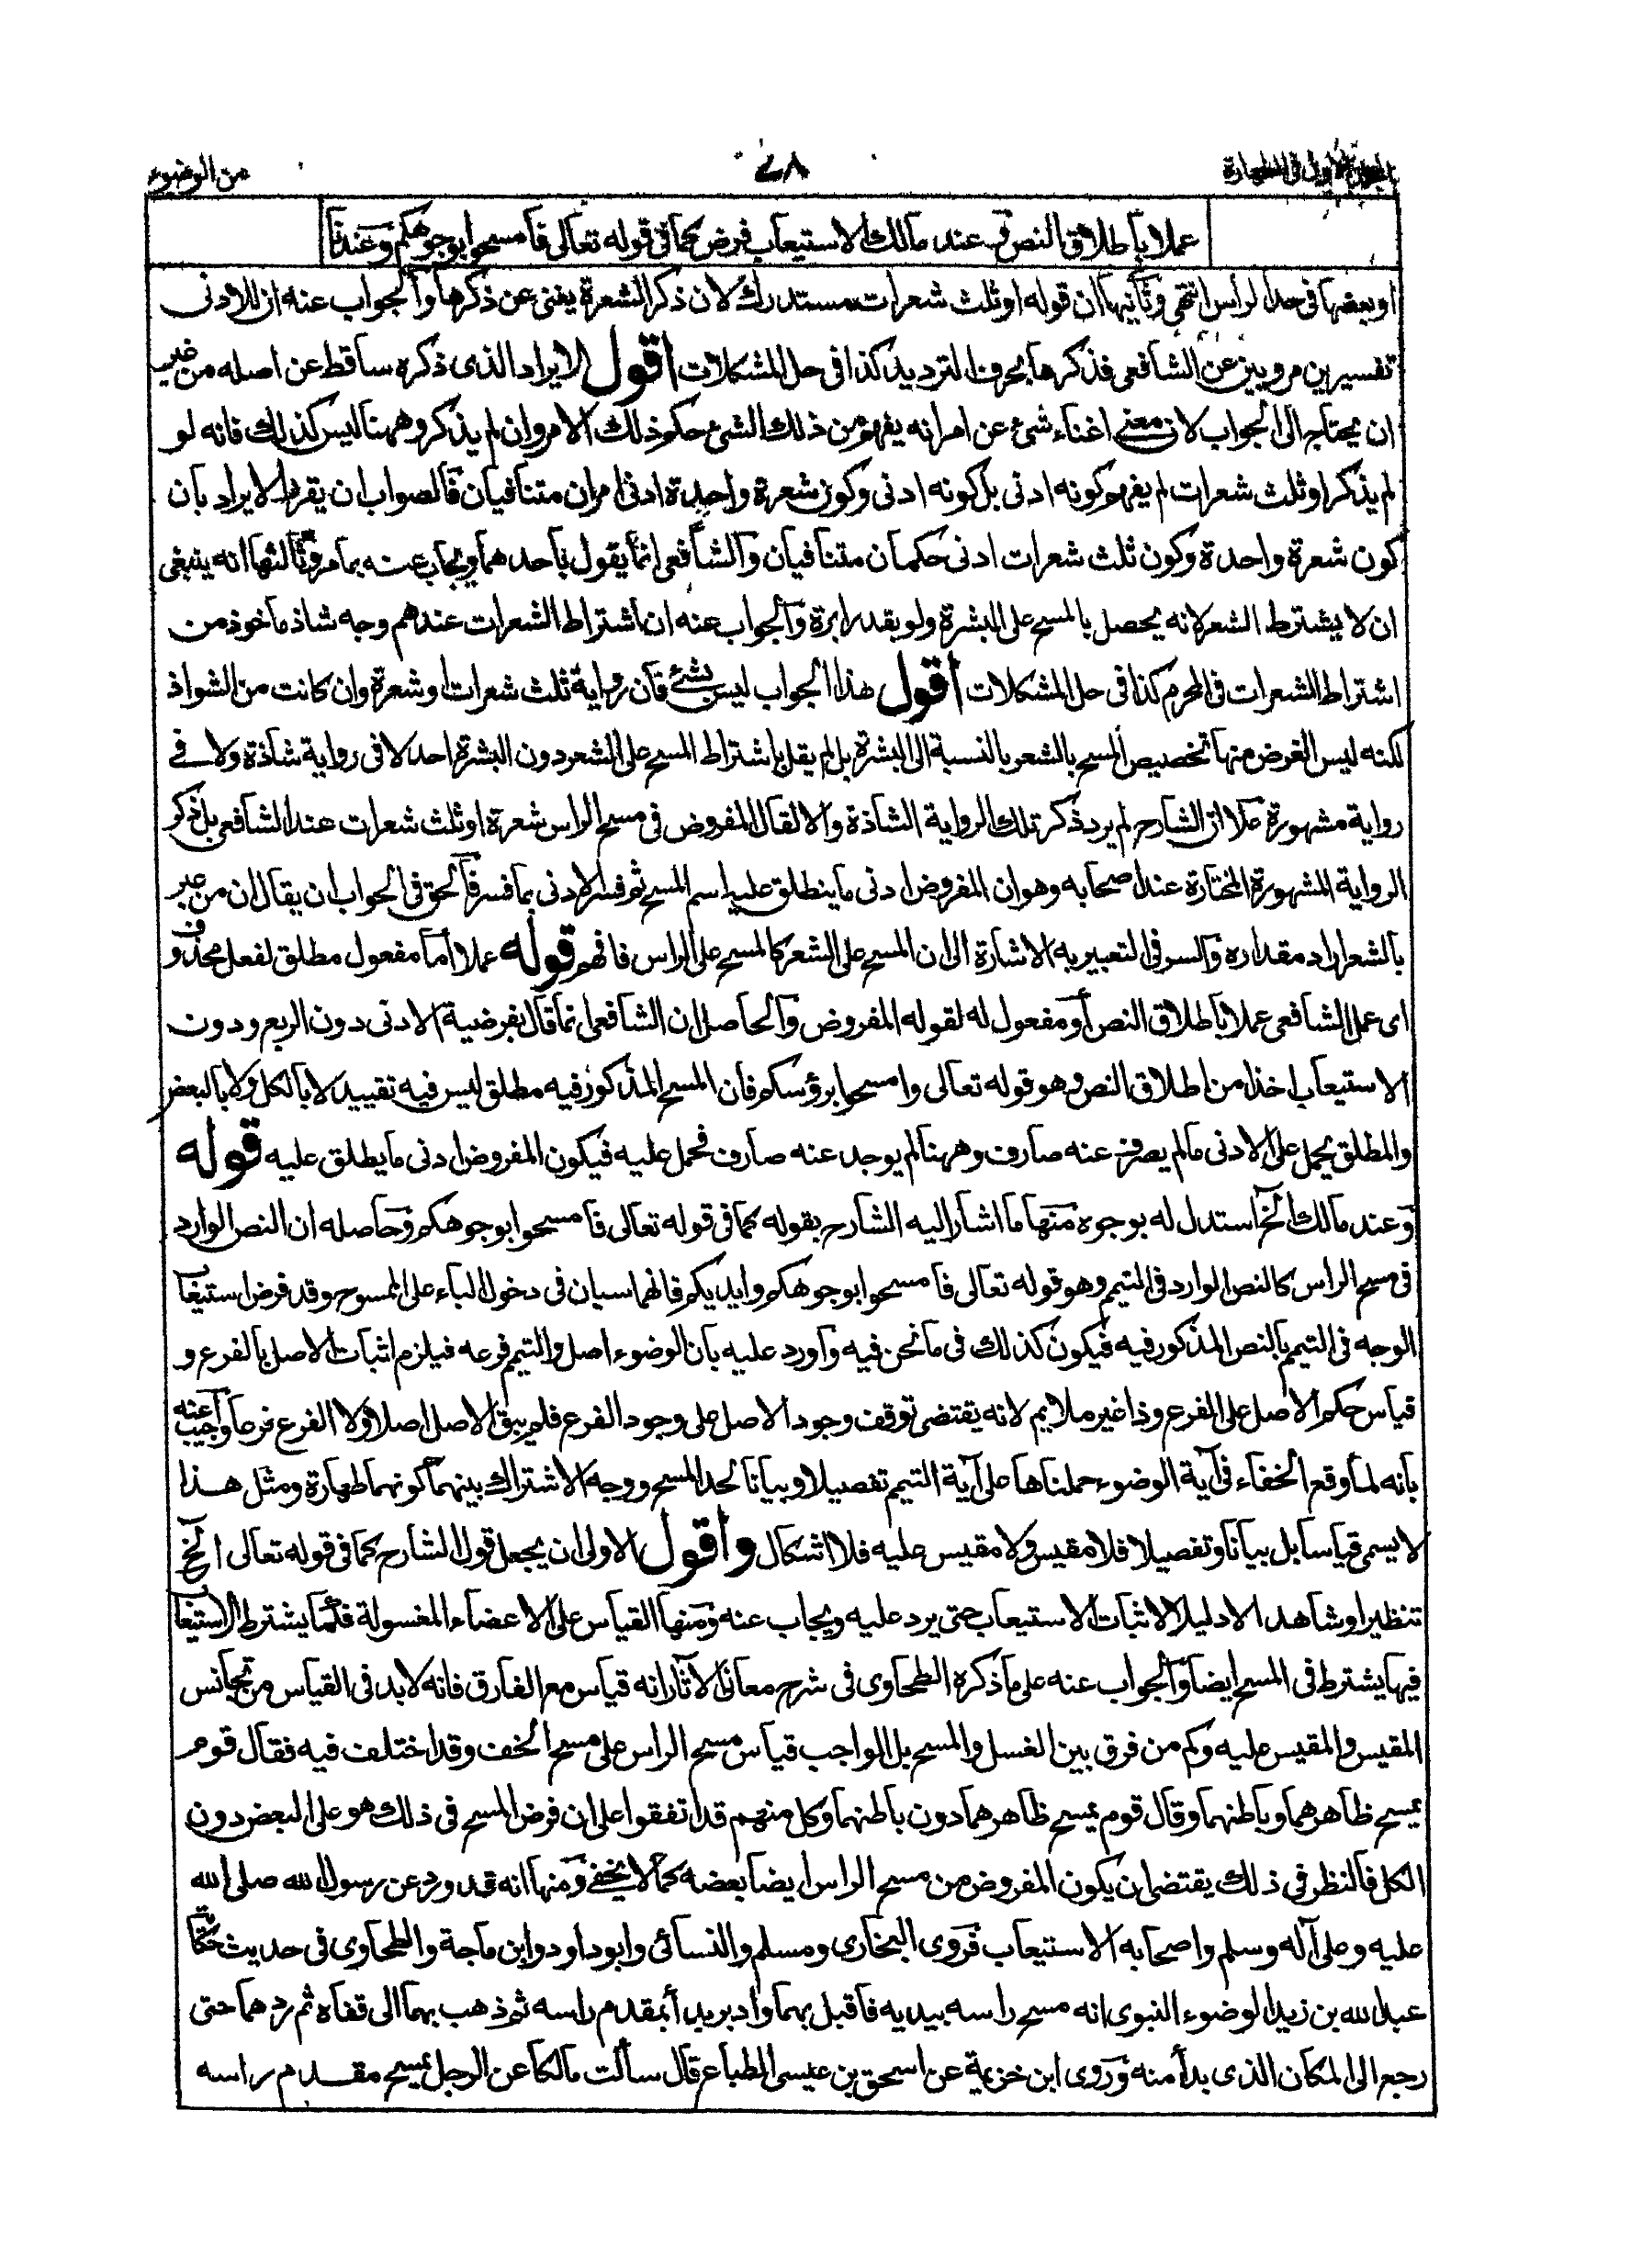 من الوضوء
٤٨
عملا باطلاق النص وعند مالك الاستيعاب فرض كما فى قوله تعالى فامسحوا بوجوهكم وعندنا
او بعضها فى حد الراس انتهى وثانيها ان قوله او ثلث شعرات مستدرك لان ذكر الشعرة يغنى عن ذكرها والجواب عنه ان للادنى
تفسيرين مرويين عن الشافعى فذكرها بحرف الترديد كذا فى حل المشكلات اقول الايراد الذى ذكره ساقط عن اصله من غير
ان يحتاج الى الجواب لان معنى اغناء شئ عن امر انه يفهم من ذلك الشئ حكم ذلك الامر وان لم يذكر وههنا ليس كذلك فانه لو
لم يذكر او ثلث شعرات لم يفهم كونه ادنى بل كونه ادنى وكون شعرة واحدة ادنى امران متنافيان فالصواب ان يقرر الايراد بان
كون شعرة واحدة وكون ثلث شعرات ادنى حكمان متنافيان والشافعى انما يقول باحدهما ويجاب عنه بما مر وثالثها انه ينبغى
ان لا يشترط الشعر لانه يحصل بالمسح على البشرة ولو بقدر ابرة والجواب عنه ان اشتراط الشعرات عندهم وجه شاذ ماخوذ من
اشتراط الشعرات فى المحرم كذا فى حل المشكلات اقول هذا الجواب ليس بشئ فان رواية ثلث شعرات او شعرة وان كانت من الشواذ
لكنه ليس الغرض منها تخصيص المسح بالشعر بالنسبة الى البشرة بل لم يقل باشتراط المسح على الشعر دون البشرة احد لا فى رواية شاذة ولا فى
رواية مشهورة علا ان الشارح لم يرد ذكر تلك الرواية الشاذة والا لقال المفروض فى مسح الراس شعرة او ثلث شعرات عند الشافعى بل ذكر
الرواية المشهورة المختارة عند اصحابه وهو ان المفروض ادنى ما ينطلق عليه اسم المسح ثم فسر الادنى بما فسر فالحق فى الجواب ان يقال ان من عبر
بالشعر اراد مقداره والسر فى التعبير به الاشارة الى ان المسح على الشعر كالمسح على الراس فافهم قوله عملا اما مفعول مطلق لفعل محذوف
اى عمل الشافعى عملا باطلاق النص او مفعول له لقوله المفروض والحاصل ان الشافعى انما قال بفرضية الادنى دون الربع ودون
الاستيعاب اخذا من اطلاق النص وهو قوله تعالى وامسحوا برؤسكم فان المسح المذكور فيه مطلق ليس فيه تقييد لا بالكل ولا بالبعض
والمطلق يحمل على الادنى ما لم يصرف عنه صارف وههنا لم يوجد عنه صارف فحمل عليه فيكون المفروض ادنى ما يطلق عليه قوله
وعند مالك الخ استدل له بوجوه منها ما اشار اليه الشارح بقوله كما فى قوله تعالى فامسحوا بوجوهكم وحاصله ان النص الوارد
فى مسح الراس كالنص الوارد فى التيمم وهو قوله تعالى فامسحوا بوجوهكم وايديكم فانهما سيان فى دخول الباء على الممسوح وقد فرض استيعاب
الوجه فى التيمم بالنص المذكور فيه فيكون كذلك فى ما نحن فيه واورد عليه بان الوضوء اصل والتيمم فرعه فيلزم اثبات الاصل بالفرع و
قياس حكم الاصل على الفرع وذا غير ملايم لانه يقتضى توقف وجود الاصل على وجود الفرع فلم يبق الاصل اصلا ولا الفرع فرعا واجيب عنه
بانه لما وقع الخفاء فى آية الوضوء حملناها على آية التيمم تفصيلا وبيانا لحد المسح ووجه الاشتراك بينهما كونهما طهارة ومثل هذا
لا يسمى قياسا بل بيانا وتفصيلا فلا مقيس ولا مقيس عليه فلا اشكال واقول الاولى ان يجعل قول الشارح كما فى قوله تعالى الخ
تنظيرا وشاهدا لا دليلا لاثبات الاستيعاب حتى يرد عليه ويجاب عنه ومنها القياس على الاعضاء المغسولة فكما يشترط الاستيعاب
فيها يشترط فى المسح ايضا والجواب عنه على ما ذكره الطحاوى فى شرح معانى الآثار انه قياس مع الفارق فانه لا بد فى القياس من تجانس
المقيس والمقيس عليه وكم من فرق بين الغسل والمسح بل الواجب قياس مسح الراس على مسح الخف وقد اختلف فيه فقال قوم
يمسح ظاهرهما وباطنهما وقال قوم يمسح ظاهرهما دون باطنهما وكل منهم قد اتفقوا على ان فرض المسح فى ذلك هو على البعض دون
الكل فالنظر فى ذلك يقتضى ان يكون المفروض من مسح الراس ايضا بعضه كما لا يخفى ومنها انه قد ورد عن رسول الله صلى الله
عليه وعلى آله وسلم واصحابه الاستيعاب فروى البخارى ومسلم والنسائى وابو داود وابن ماجة والطحاوى فى حديث حكاية
عبد الله بن زيد الوضوء النبوى انه مسح راسه بيديه فاقبل بهما وادبر بدأ بمقدم راسه ثم ذهب بهما الى قفاه ثم ردهما حتى
رجع الى المكان الذى بدأ منه وروى ابن خزيمة عن اسحق بن عيسى الطباع قال سألت مالكا عن الرجل يمسح مقدم راسه